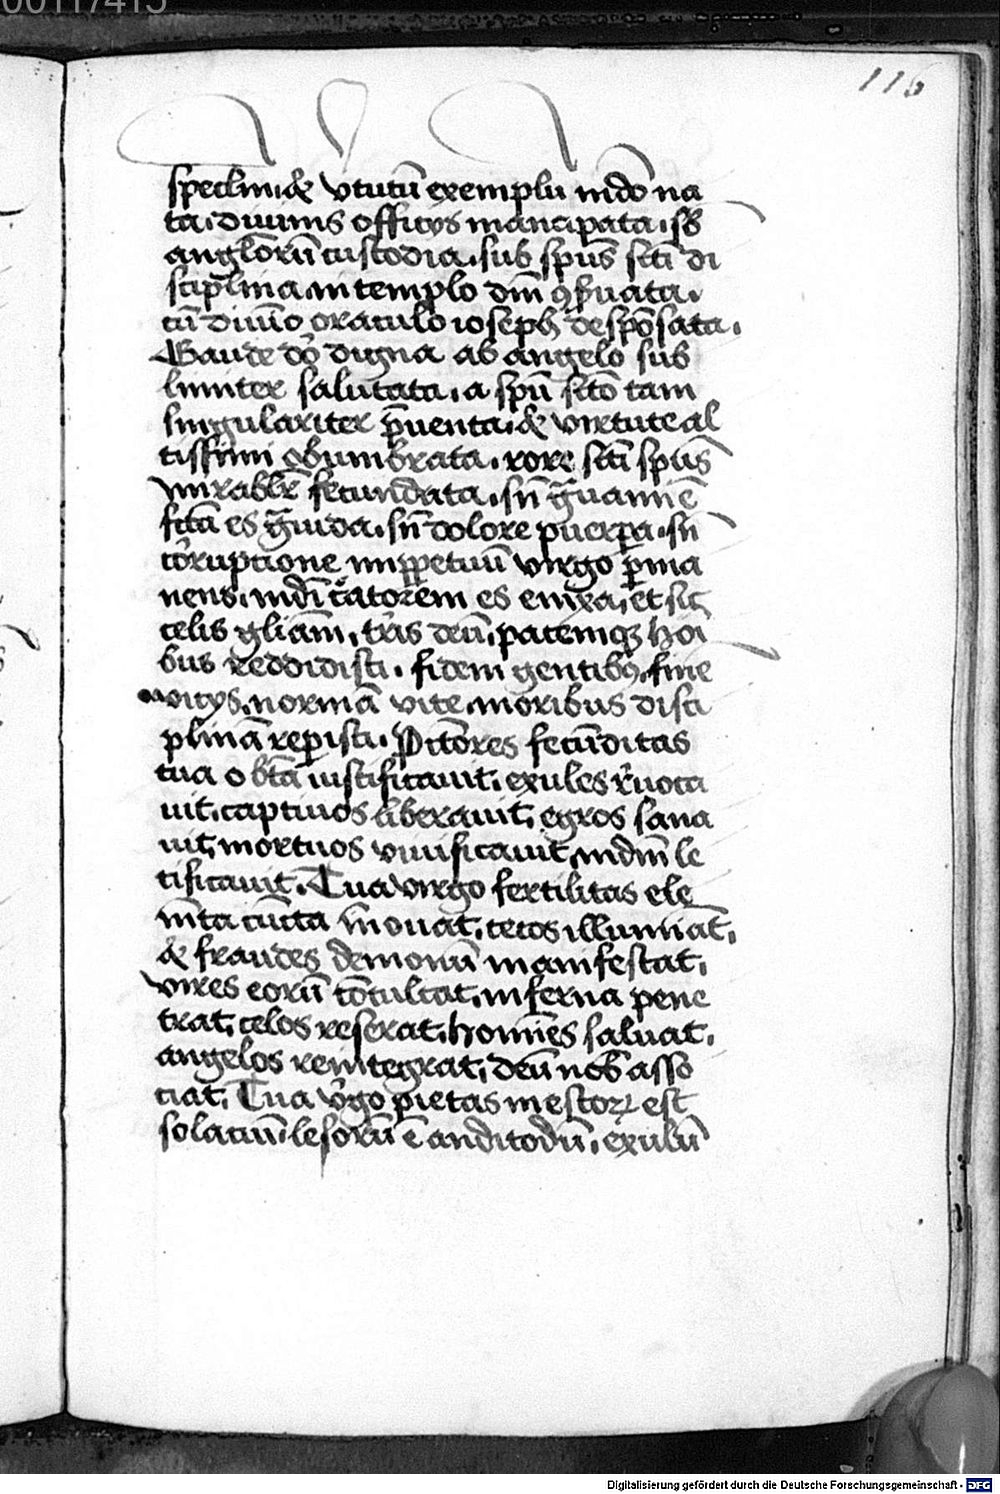 00117415
116
speclm̄. & v̓tutū exemplū mdo᷒ na
ta. diuinis officijs mancipata. sb᷒
angl̄orū custodia. sub spūs scī̄ di
scipl̄ina in templo dn̄i ꝯseruata.
cū diuīo oraculo ioseph despōsata.
Gaude dō digna ab angelo sub
limiter salutata. a spū scō tam
singulariter p̄uenta. & virtute al
tissimi obumbrata. rore scī spūs
mirabilr̄ fecundata. sn̄ g̃uamīe
fc̄ta es g̃uida. sn̄ dolore puerpa. sn̄
coruptione in ꝑpetuū virgo ꝑma
nens. mdī c̃atorem es enixa. et sic
celis gl̄iam. tr̄is deū. pacemqꝫ hoī
bus reddidisti. fidem gentibꝰ. finē
vicijs. normā vite. moribus disci
plinā reperisti. Pctōres fecūditas
tua o btā iustificauit. exules r̓uoca
uit. captiuos liberauit. egros sana
uit. mortuos viuificauit. mdm̄ le
tificauit. Tua virgo fertilitas ele
m̄ta cūcta īnouat. cecos illuminat.
& fraudes demonū manifestat.
vires eorū cōculcat. inferna pene
trat. celos reserat. homīes saluat.
angelos reintegrat. deū nob᷒ asso
ciat. Tua v̓go pietas mestoꝝ est
solaciū. lesorū ē antitodū. exulū
Digitalisierung gefördert durch die Deutsche Forschungsgemeinschaft - DFG